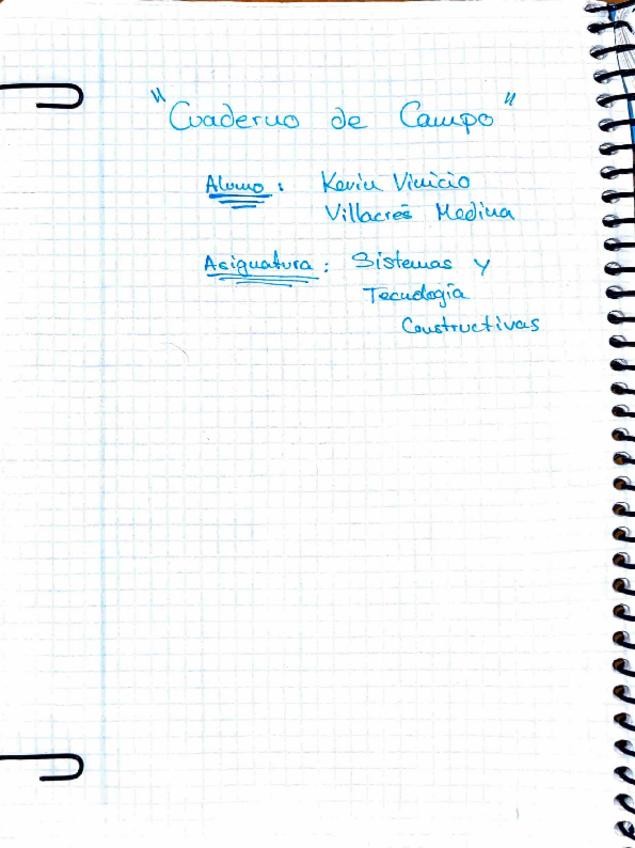 "Cuaderno de Campo"
Alumno: Kevin Vinicio
Villacrés Medina
Asignatura: Sistemas y
Tecnología
Constructivas